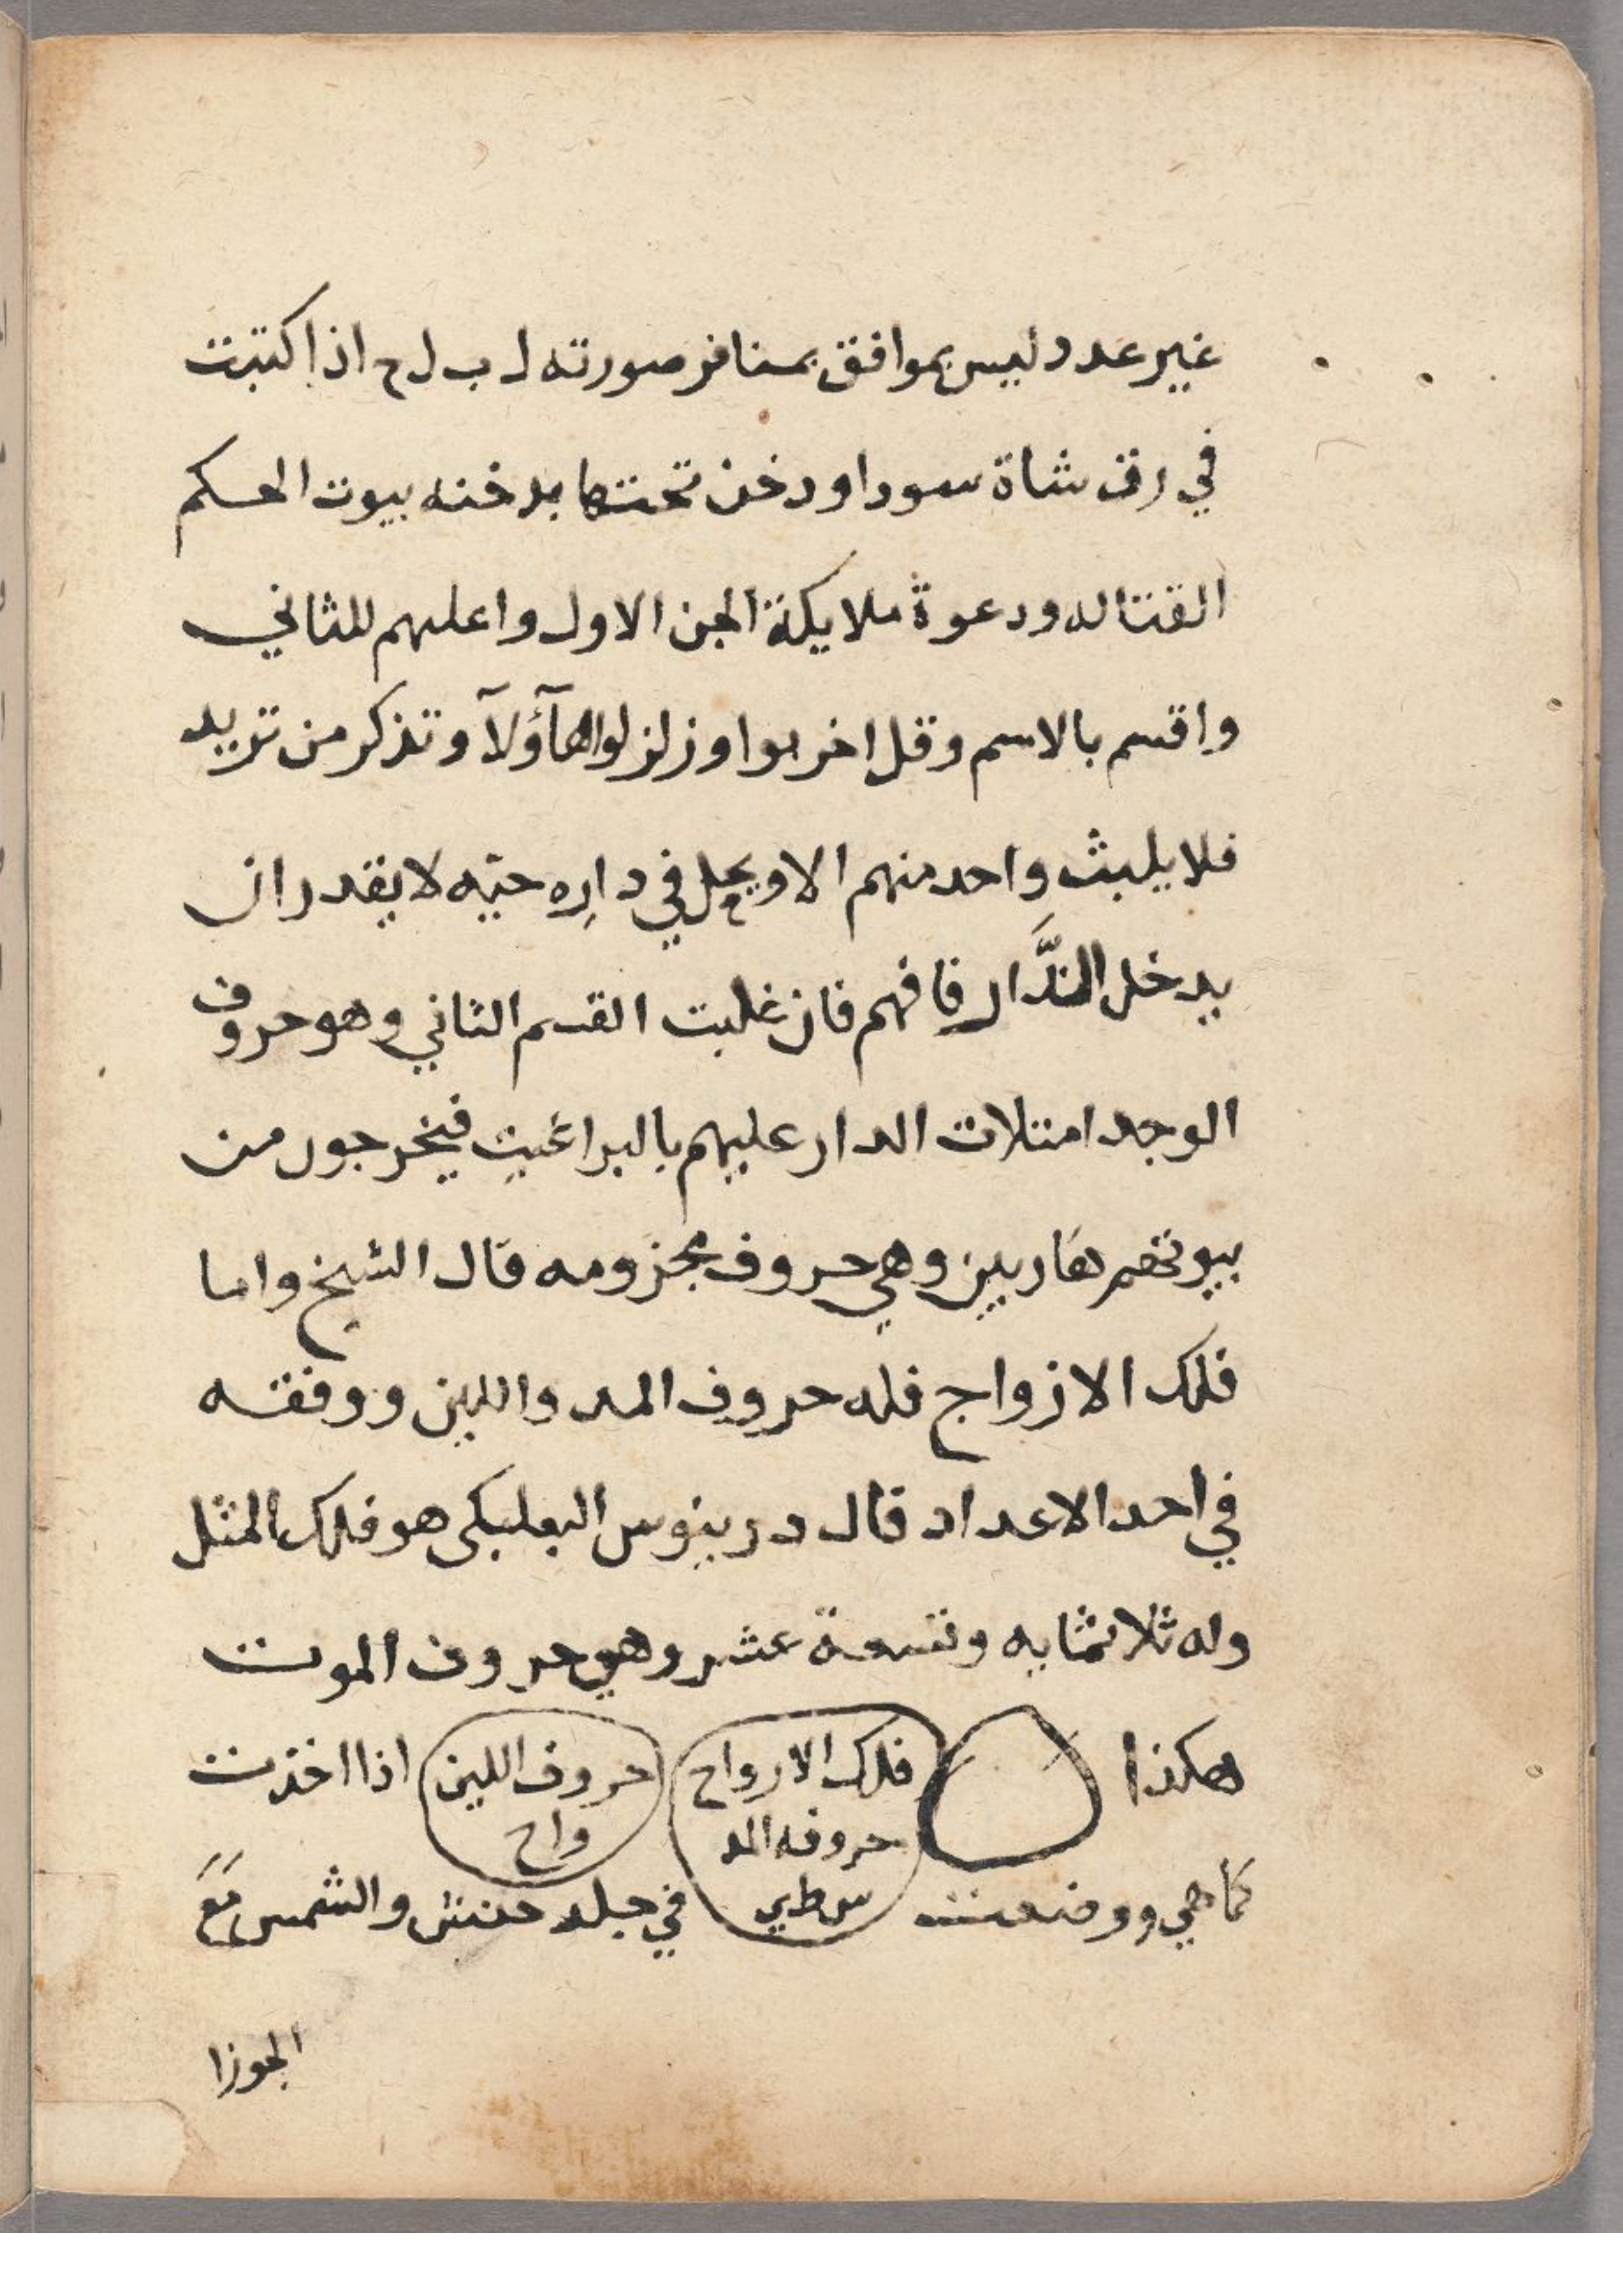 غير عدد ليس بموافق بمنافر صورته ل ب ل ح اذا كتبت
في رق شاة سودا ودخن تحتها بدخنه بيوت الحكم
القتاله ودعوة ملايكة الجن الاول واعلهم للثاني
واقسم بالاسم وقل اخربوا وزلزلوا هآؤلآ وتذكر من تريد
فلا يلبث واحد منهم الا ويحل في داره حيّه لا يقدر ان
يدخل الدَّار فافهم فان غلبت القسم الثاني وهو حروف
الوجد امتلات الدار عليهم بالبراغيت فيخرجون من
بيوتهم هاربين وهي حروف مجزومه قال الشيخ واما
فلك الازواج فله حروف المد واللين ووفقه
في احد الاعداد قال درينوس البعلبكى هو فلك المثل
وله ثلاثمايه وتسعة عشر وهي حروف الموت
هكذا
فلك الارواح
حروفه المد
س ط ي
حروف اللين
واح
اذا اخذت
كما هي ووضعت في جلد حنش والشمس مَعَ
الجوزا